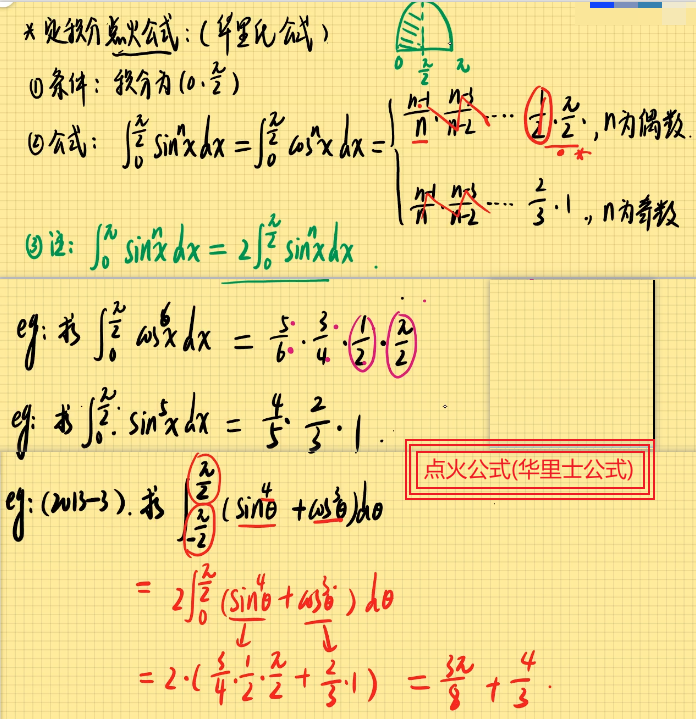 * 定积分点火公式:(华里氏公式)
0 π/2 π
① 条件: 积分为(0·π/2)
② 公式: ∫_0^{π/2} sin^n x dx = ∫_0^{π/2} cos^n x dx = { (n-1)/n · (n-3)/(n-2) ··· 1/2 · π/2 ·, n为偶数.
(n-1)/n · (n-3)/(n-2) ··· 2/3 · 1 ., n为奇数
③ 注: ∫_0^π sin^n x dx = 2∫_0^{π/2} sin^n x dx .
eg: 求 ∫_0^{π/2} cos^6 x dx = 5/6 · 3/4 · 1/2 · π/2
eg: 求 ∫_0^{π/2} sin^5 x dx = 4/5 · 2/3 · 1 .
点火公式(华里士公式)
eg: (2013-3). 求 ∫_{-π/2}^{π/2} (sin^4 θ + cos^3 θ)dθ
= 2∫_0^{π/2} (sin^4 θ + cos^3 θ) dθ
= 2·( 3/4 · 1/2 · π/2 + 2/3 · 1 ) = 3π/8 + 4/3 .